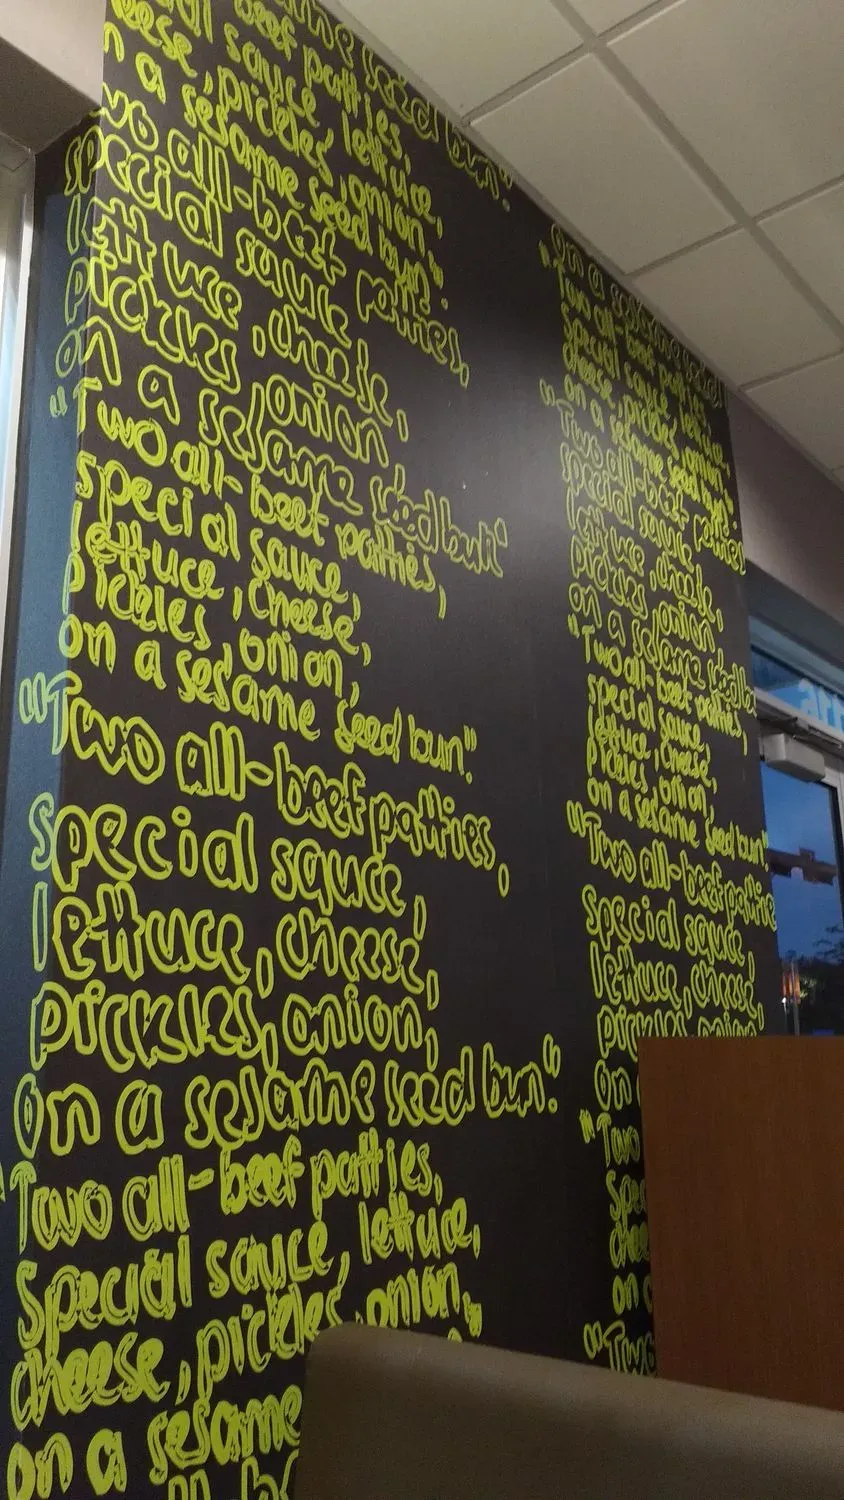 sesame seed bun."
beef patties,
sauce, lettuce,
cheese, pickles, onion,
on a sesame seed bun."
Two all-beef patties,
special sauce
lettuce, cheese,
pickles, onion,
on a sesame seed bun"
"Two all-beef patties,
special sauce,
lettuce, cheese,
pickles, onion,
on a sesame seed bun."
"Two all-beef patties,
special sauce,
lettuce, cheese,
pickles, onion,
on a sesame seed bun."
"Two all-beef patties,
special sauce, lettuce,
cheese, pickles, onion,"
on a sesame
on a sesame seed
"Two all-beef patties
special sauce, lettuce,
cheese, pickles, onion,
on a sesame seed bun."
"Two all-beef patties
special sauce
lettuce, cheese,
pickles, onion
on a sesame seed
"Two all-beef patties,
special sauce,
lettuce, cheese,
pickles, onion,
on a sesame seed bun."
"Two all-beef pattie
special sauce,
lettuce, cheese,
pickles, onion,
on
"Two
spec
chee
on a
"Two